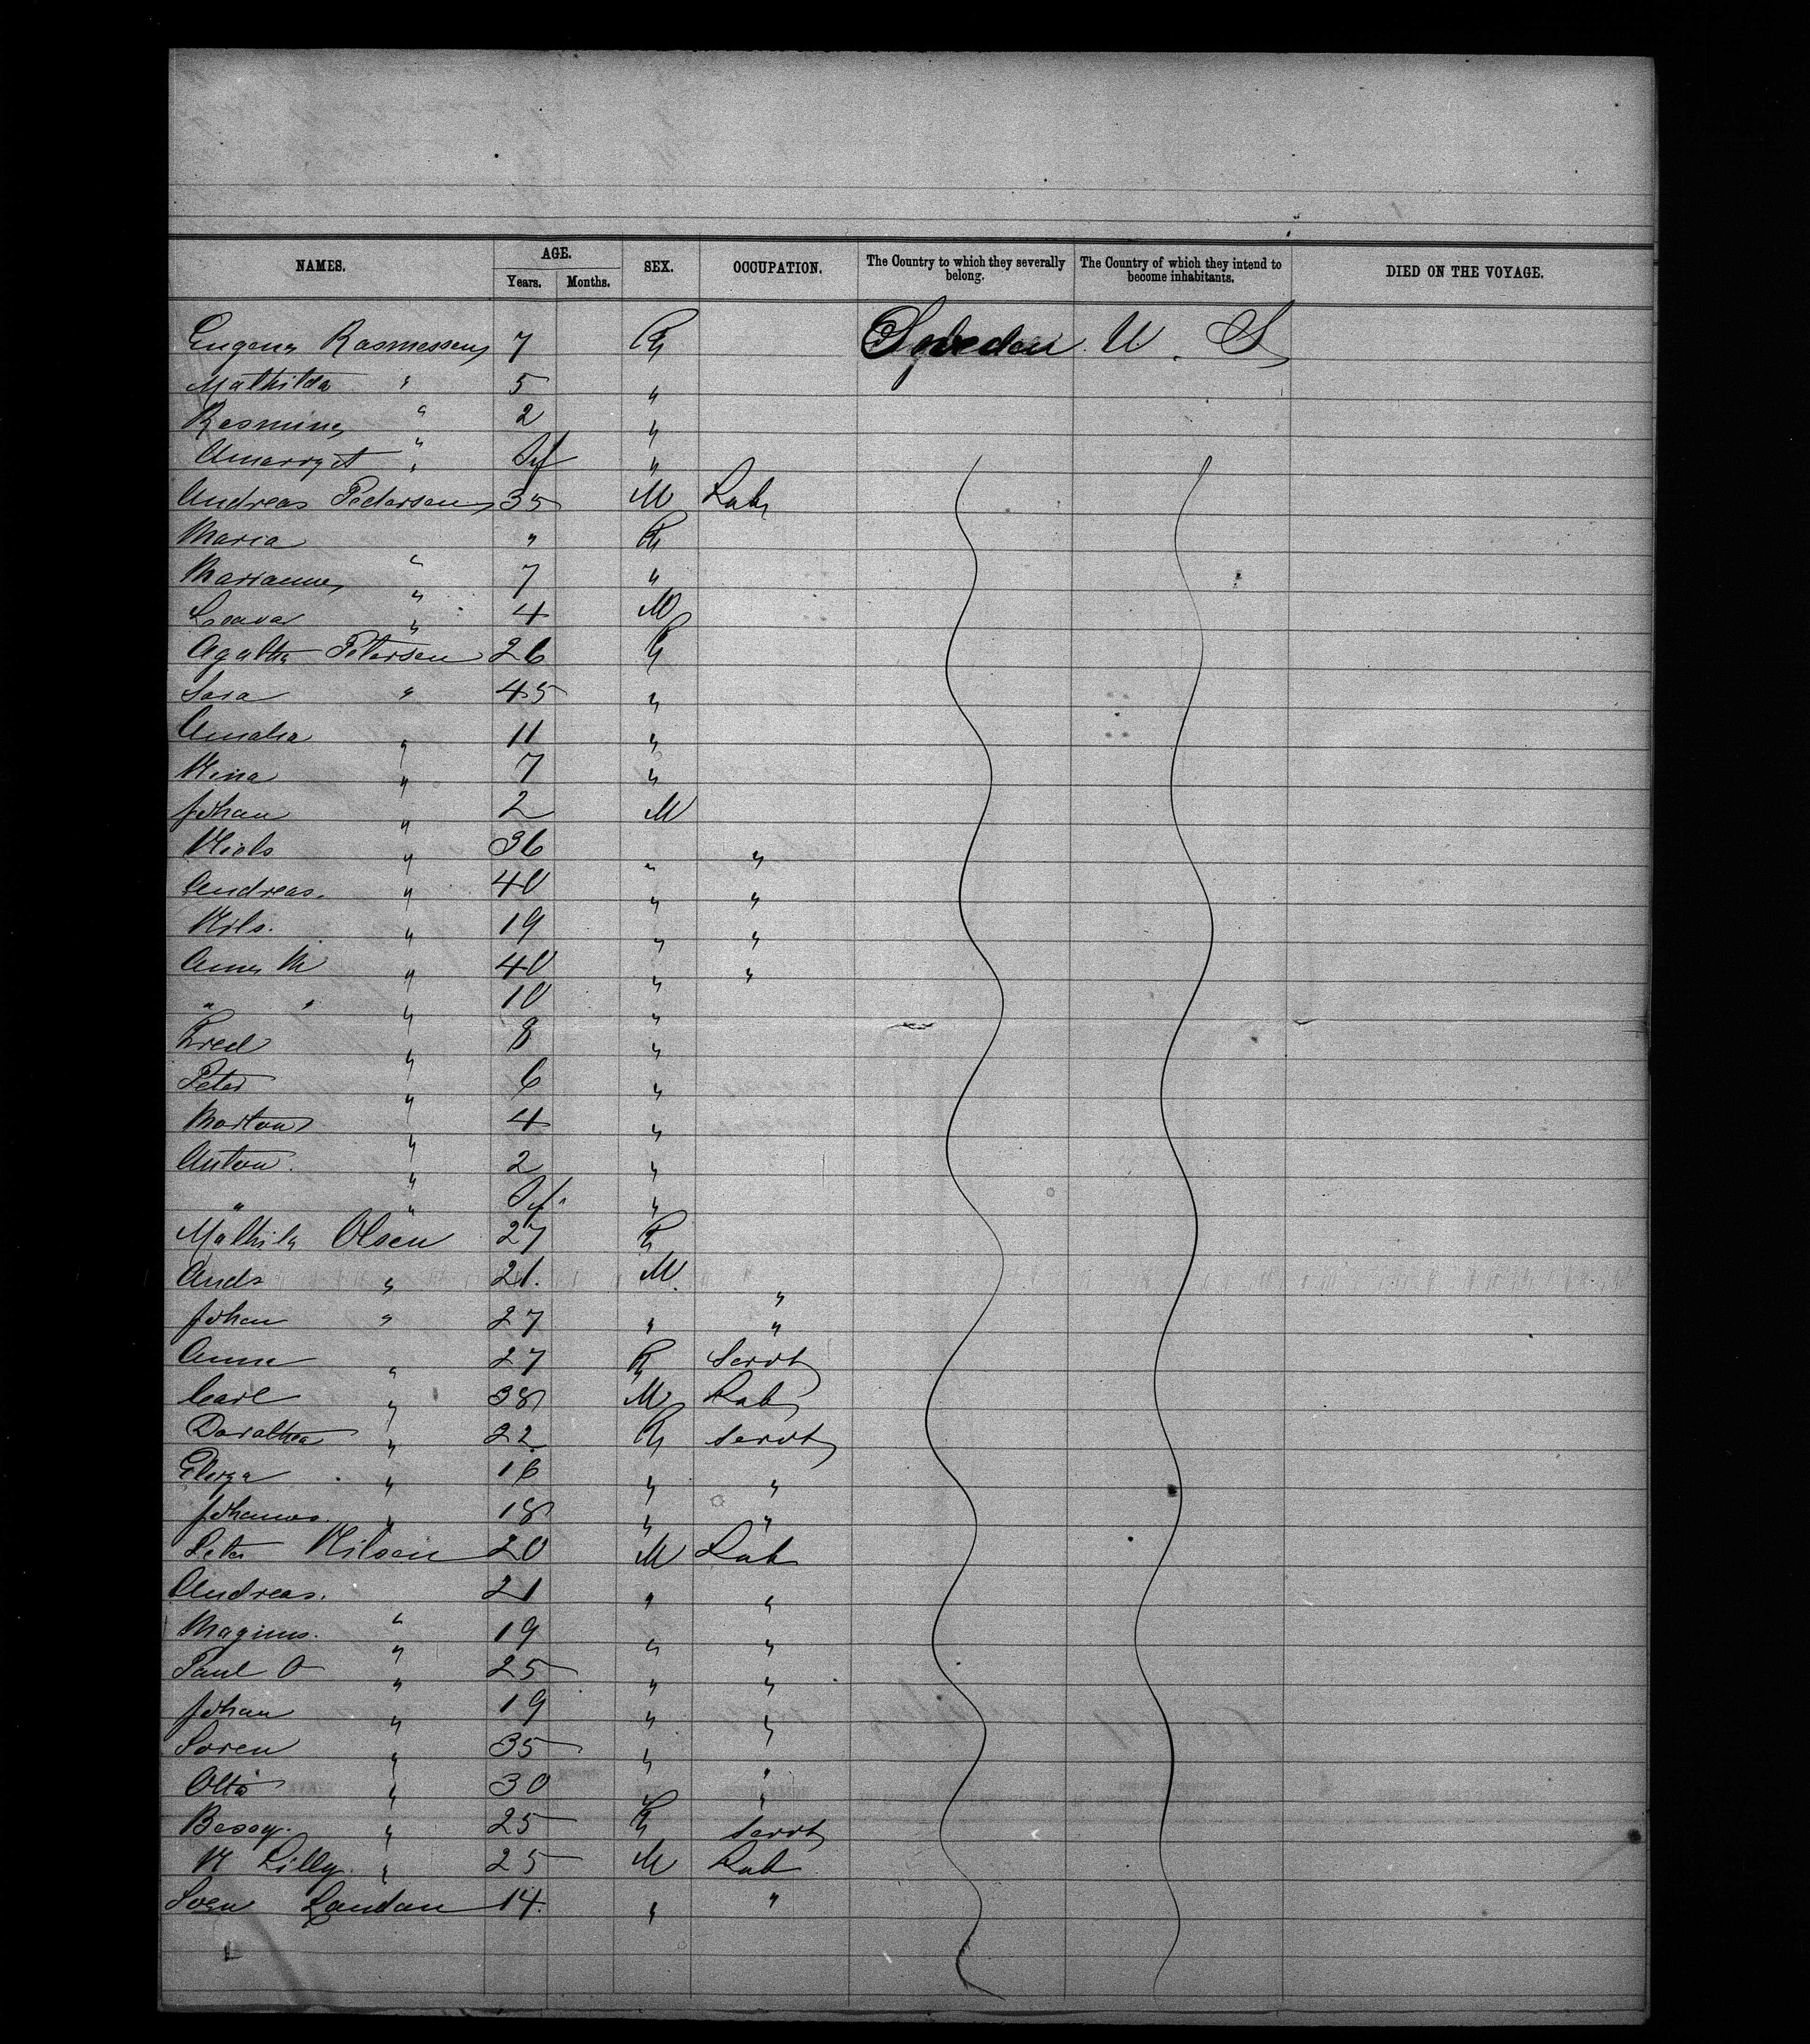 NAMES. AGE. SEX. OCCUPATION. The Country to which they severally belong. The Country of which they intend to become inhabitants. DIED ON THE VOYAGE.
Years. Months.
Eugena Rasmussen 7 F Sweden U. S
Mathilda " 5 "
Rasmine " 2 "
" Inf "
Andreas Pedersen 35 M Lab
Maria " " F
Marianne " 7 "
" 4 M
Agatha Petersen 26 F
Sara " 45 "
Amalia " 11 "
Nina " 7 "
Johan " 2 M
Niels " 36 " "
Andreas. " 40 " "
Nils. " 19 " "
Anna M " 40 " "
" " " 10 "
Fred " 8 "
Peter " 6 "
Morton " 4 "
Anton. " 2 "
" " Inf. "
Mathila Olsen 27 F
Ands " 21. M "
Johan " 27 " "
Anna " 27 F Servt
Carl " 38 M Lab
Dorathea " 22 F Servt
" 16 " "
Johannes. " 18 " "
Peter Nilsen 20 M Lab
Andreas. " 21 " "
Magnus. " 19 " "
Paul O " 25 " "
Johan " 19 " "
Soren " 35 " "
Otto " 30 " "
Bessy. " 25 F Servt
N Lilly. " 25 M Lab
Sven Landan 14. " "